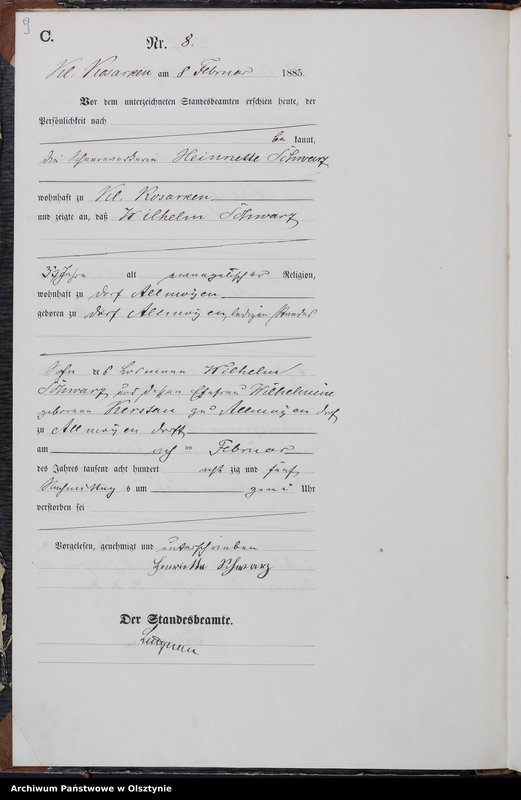 9
C.
Nr. 8.
Kl. Rosarken am 8 Februar 1885.
Vor dem unterzeichneten Standesbeamten erschien heute, der
Persönlichkeit nach
be kannt,
die Henriette Schwarz
wohnhaft zu Kl. Rosarken
und zeigte an, daß Wilhelm Schwarz
39 Jahre alt evangelischer Religion,
wohnhaft zu Dorf Allmoyen
geboren zu Dorf Allmoyen, ledigen Standes
Sohn des Losmann Wilhelm
Schwarz und dessen Ehefrau Wilhelmine
geborene Kerstan zu Allmoyen Dorf
zu Allmoyen Dorf
am ach ten Februar
des Jahres tausend acht hundert acht zig und fünf
Nachmittag s um zwei Uhr
verstorben sei
Vorgelesen, genehmigt und unterschrieben
Henriette Schwarz
Der Standesbeamte.
Archiwum Państwowe w Olsztynie